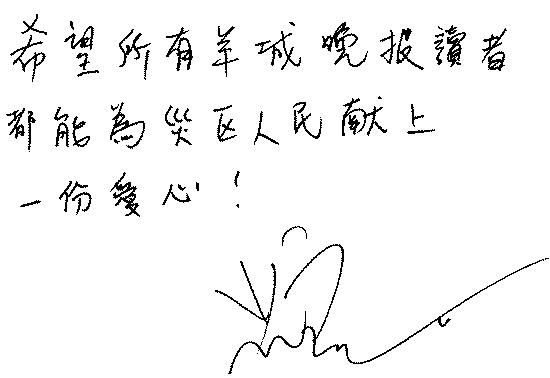 希望所有羊城晚报讀者
都能為災区人民献上
一份愛心!